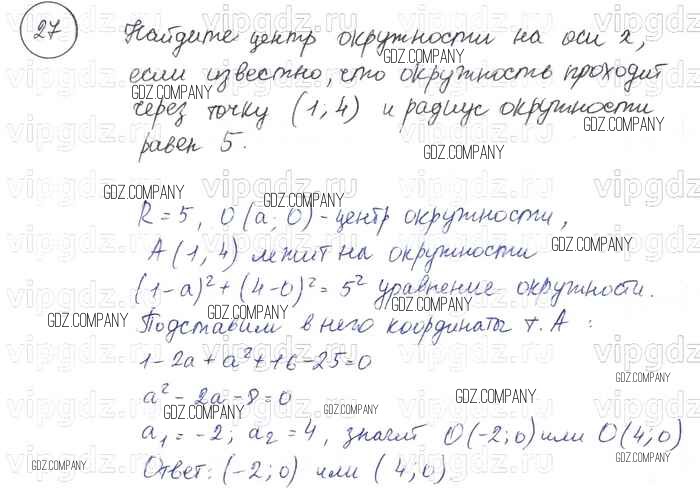 27 Найдите центр окружности на оси x,
если известно, что окружность проходит
через точку (1, 4) и радиус окружности
равен 5.
R = 5, O (a; 0) - центр окружности,
A (1, 4) лежит на окружности
(1-a)² + (4-0)² = 5² уравнение окружности.
Подставим в него координаты т. A :
1-2a + a² + 16 - 25 = 0
a² - 2a - 8 = 0
a₁ = -2; a₂ = 4, значит O (-2; 0) или O (4; 0)
Ответ: (-2; 0) или (4; 0).
GDZ.COMPANY
vipgdz